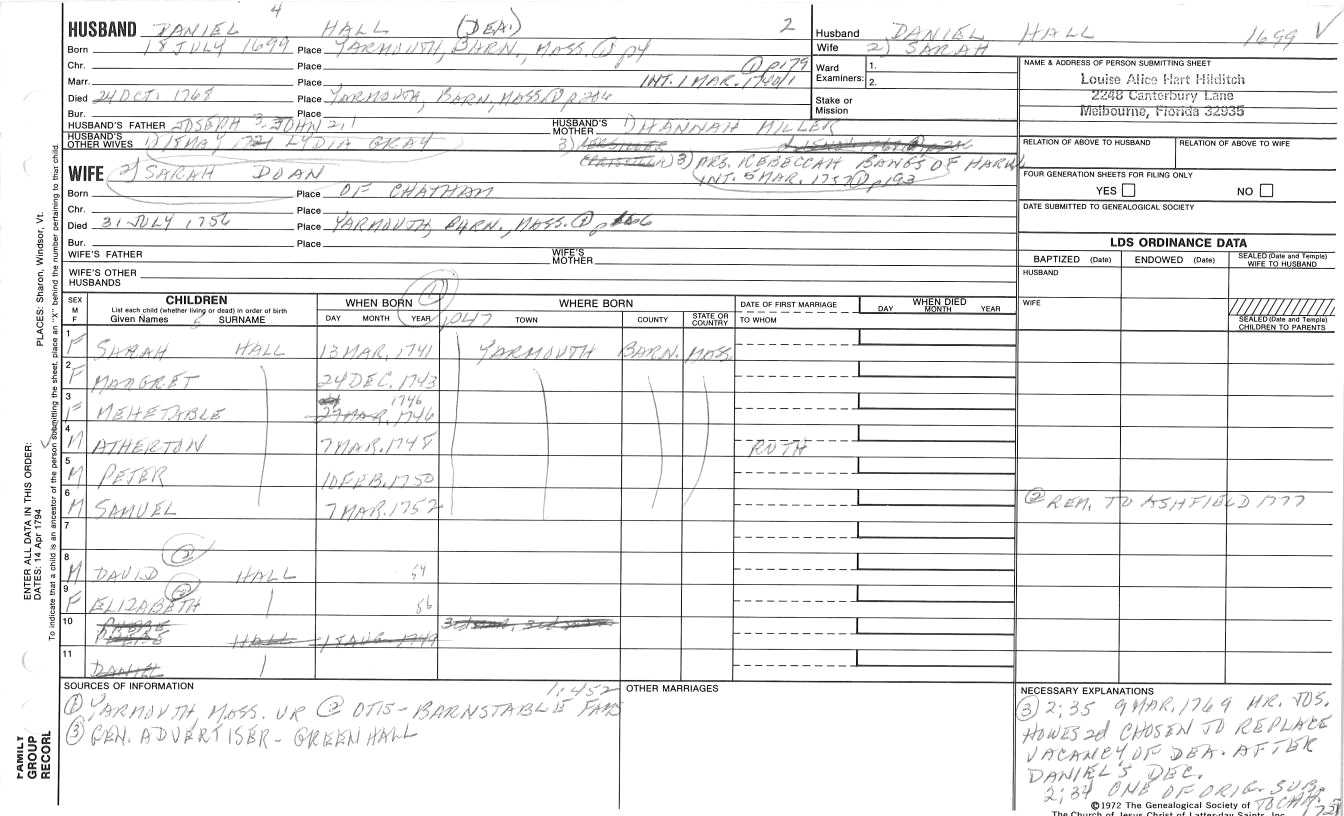 4
HUSBAND DANIEL HALL (DEA.) 2
Born 18 JULY 1699 Place YARMOUTH, BARN., MASS. ① p4
Chr. Place ① p179
Marr. Place INT. 1 MAR. 1740/1
Died 24 OCT. 1768 Place YARMOUTH, BARN., MASS. ① p206
Bur. Place
HUSBAND'S FATHER JOSEPH 3, JOHN 2, 1 HUSBAND'S MOTHER HANNAH MILLER
HUSBAND'S OTHER WIVES 1) LYDIA GRAY 3)
3) MRS. REBECCAH BANGS OF HARW.
INT. 5 MAR. 1757 ① p193
WIFE 2) SARAH DOAN
Born Place OF CHATHAM
Chr. Place
Died 31 JULY 1756 Place YARMOUTH, BARN., MASS. ①
Bur. Place
WIFE'S FATHER WIFE'S MOTHER
WIFE'S OTHER HUSBANDS
Husband DANIEL HALL 1699 V
Wife 2) SARAH
Ward Examiners: 1. 2.
Stake or Mission
NAME & ADDRESS OF PERSON SUBMITTING SHEET
Louise Alice Hart Hilditch
2248 Canterbury Lane
Melbourne, Florida 32935
RELATION OF ABOVE TO HUSBAND RELATION OF ABOVE TO WIFE
FOUR GENERATION SHEETS FOR FILING ONLY
YES NO
DATE SUBMITTED TO GENEALOGICAL SOCIETY
LDS ORDINANCE DATA
BAPTIZED (Date) ENDOWED (Date) SEALED (Date and Temple) WIFE TO HUSBAND
HUSBAND
WIFE
SEALED (Date and Temple) CHILDREN TO PARENTS
SEX M F CHILDREN WHEN BORN ① WHERE BORN DATE OF FIRST MARRIAGE WHEN DIED
List each child (whether living or dead) in order of birth
Given Names SURNAME DAY MONTH YEAR TOWN COUNTY STATE OR COUNTRY TO WHOM DAY MONTH YEAR
1 F SARAH HALL 13 MAR. 1741 YARMOUTH BARN. MASS.
2 F MARGRET 24 DEC. 1743
3 F MEHETABLE 1746
27 MAR. 1746
4 M ATHERTON 7 MAR. 1748 RUTH
5 M PETER 10 FEB. 1750
6 M SAMUEL 7 MAR. 1752 ② REM. TO ASHFIELD 1777
7
8 M DAVID ② HALL 54
9 F ELIZABETH ② 56
10 HALL
11 DANIEL
SOURCES OF INFORMATION 1:452
① YARMOUTH, MASS. VR ② OTIS - BARNSTABLE FAMS
③ GEN. ADVERTISER - GREENHALL
OTHER MARRIAGES
NECESSARY EXPLANATIONS
③ 2:35 9 MAR. 1769 MR. JOS.
HOWES 2d CHOSEN TO REPLACE
VACANCY OF DEA. AFTER
DANIEL'S DEC.
2:34 ONE OF ORIG. SUB.
©1972 The Genealogical Society of
The Church of Jesus Christ of Latter-day Saints, Inc.
PLACES: Sharon, Windsor, Vt.
ENTER ALL DATA IN THIS ORDER:
DATES: 14 Apr 1794
To indicate that a child is an ancestor of the person submitting the sheet, place an "X" behind the number pertaining to that child.
FAMILY
GROUP
RECORD